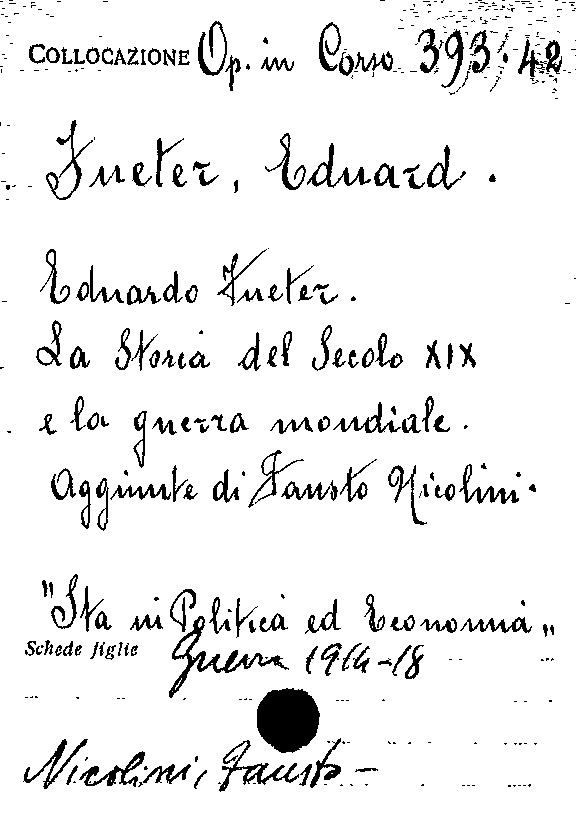 COLLOCAZIONE Op. in Corso 393.42
Fueter, Eduard.
Eduardo Fueter.
La Storia del Secolo XIX
e la guerra mondiale.
Aggiunte di Fausto Nicolini.
"Sta in Politica ed Economia„
Schede figlie Guerra 1914-18
Nicolini, Fausto -